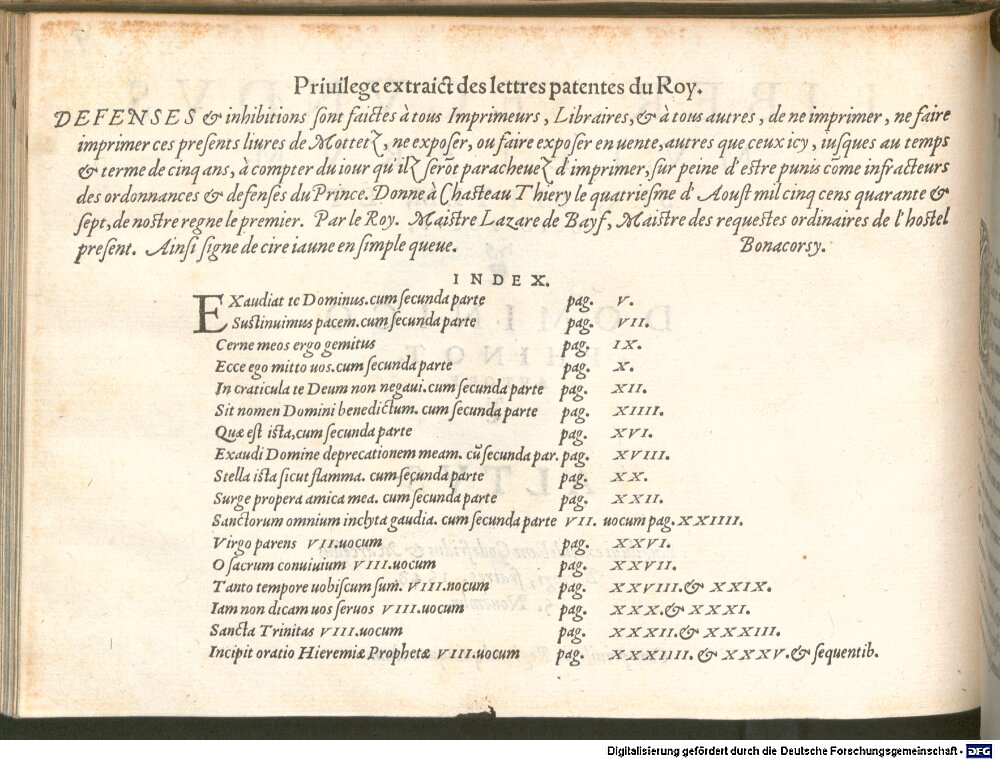 Priuilege extraict des lettres patentes du Roy.
DEFENSES & inhibitions sont faictes à tous Imprimeurs, Libraires, & à tous autres, de ne imprimer, ne faire
imprimer ces presents liures de Mottetz, ne exposer, ou faire exposer en uente, autres que ceux icy, iusques au temps
& terme de cinq ans, à compter du iour qu'ilz serõt paracheuez d'imprimer, sur peine d'estre punis cõme infracteurs
des ordonnances & defenses du Prince. Donne à Chasteau Thiery le quatriesme d'Aoust mil cinq cens quarante &
sept, de nostre regne le premier. Par le Roy. Maistre Lazare de Bayf, Maistre des requestes ordinaires de l'hostel
present. Ainsi signe de cire iaune en simple queue. Bonacorsy.
INDEX.
EXaudiat te Dominus. cum secunda parte pag. V.
Sustinuimus pacem. cum secunda parte pag. VII.
Cerne meos ergo gemitus pag. IX.
Ecce ego mitto uos. cum secunda parte pag. X.
In craticula te Deum non negaui. cum secunda parte pag. XII.
Sit nomen Domini benedictum. cum secunda parte pag. XIIII.
Quæ est ista, cum secunda parte pag. XVI.
Exaudi Domine deprecationem meam. cũ secunda par. pag. XVIII.
Stella ista sicut flamma. cum secunda parte pag. XX.
Surge propera amica mea. cum secunda parte pag. XXII.
Sanctorum omnium inclyta gaudia. cum secunda parte VII. uocum pag. XXIIII.
Virgo parens VII. uocum pag. XXVI.
O sacrum conuiuium VIII. uocum pag. XXVII.
Tanto tempore uobiscum sum. VIII. uocum pag. XXVIII. & XXIX.
Iam non dicam uos seruos VIII. uocum pag. XXX. & XXXI.
Sancta Trinitas VIII. uocum pag. XXXII. & XXXIII.
Incipit oratio Hieremiæ Prophetæ VIII. uocum pag. XXXIIII. & XXXV. & sequentib.
Digitalisierung gefördert durch die Deutsche Forschungsgemeinschaft - DFG